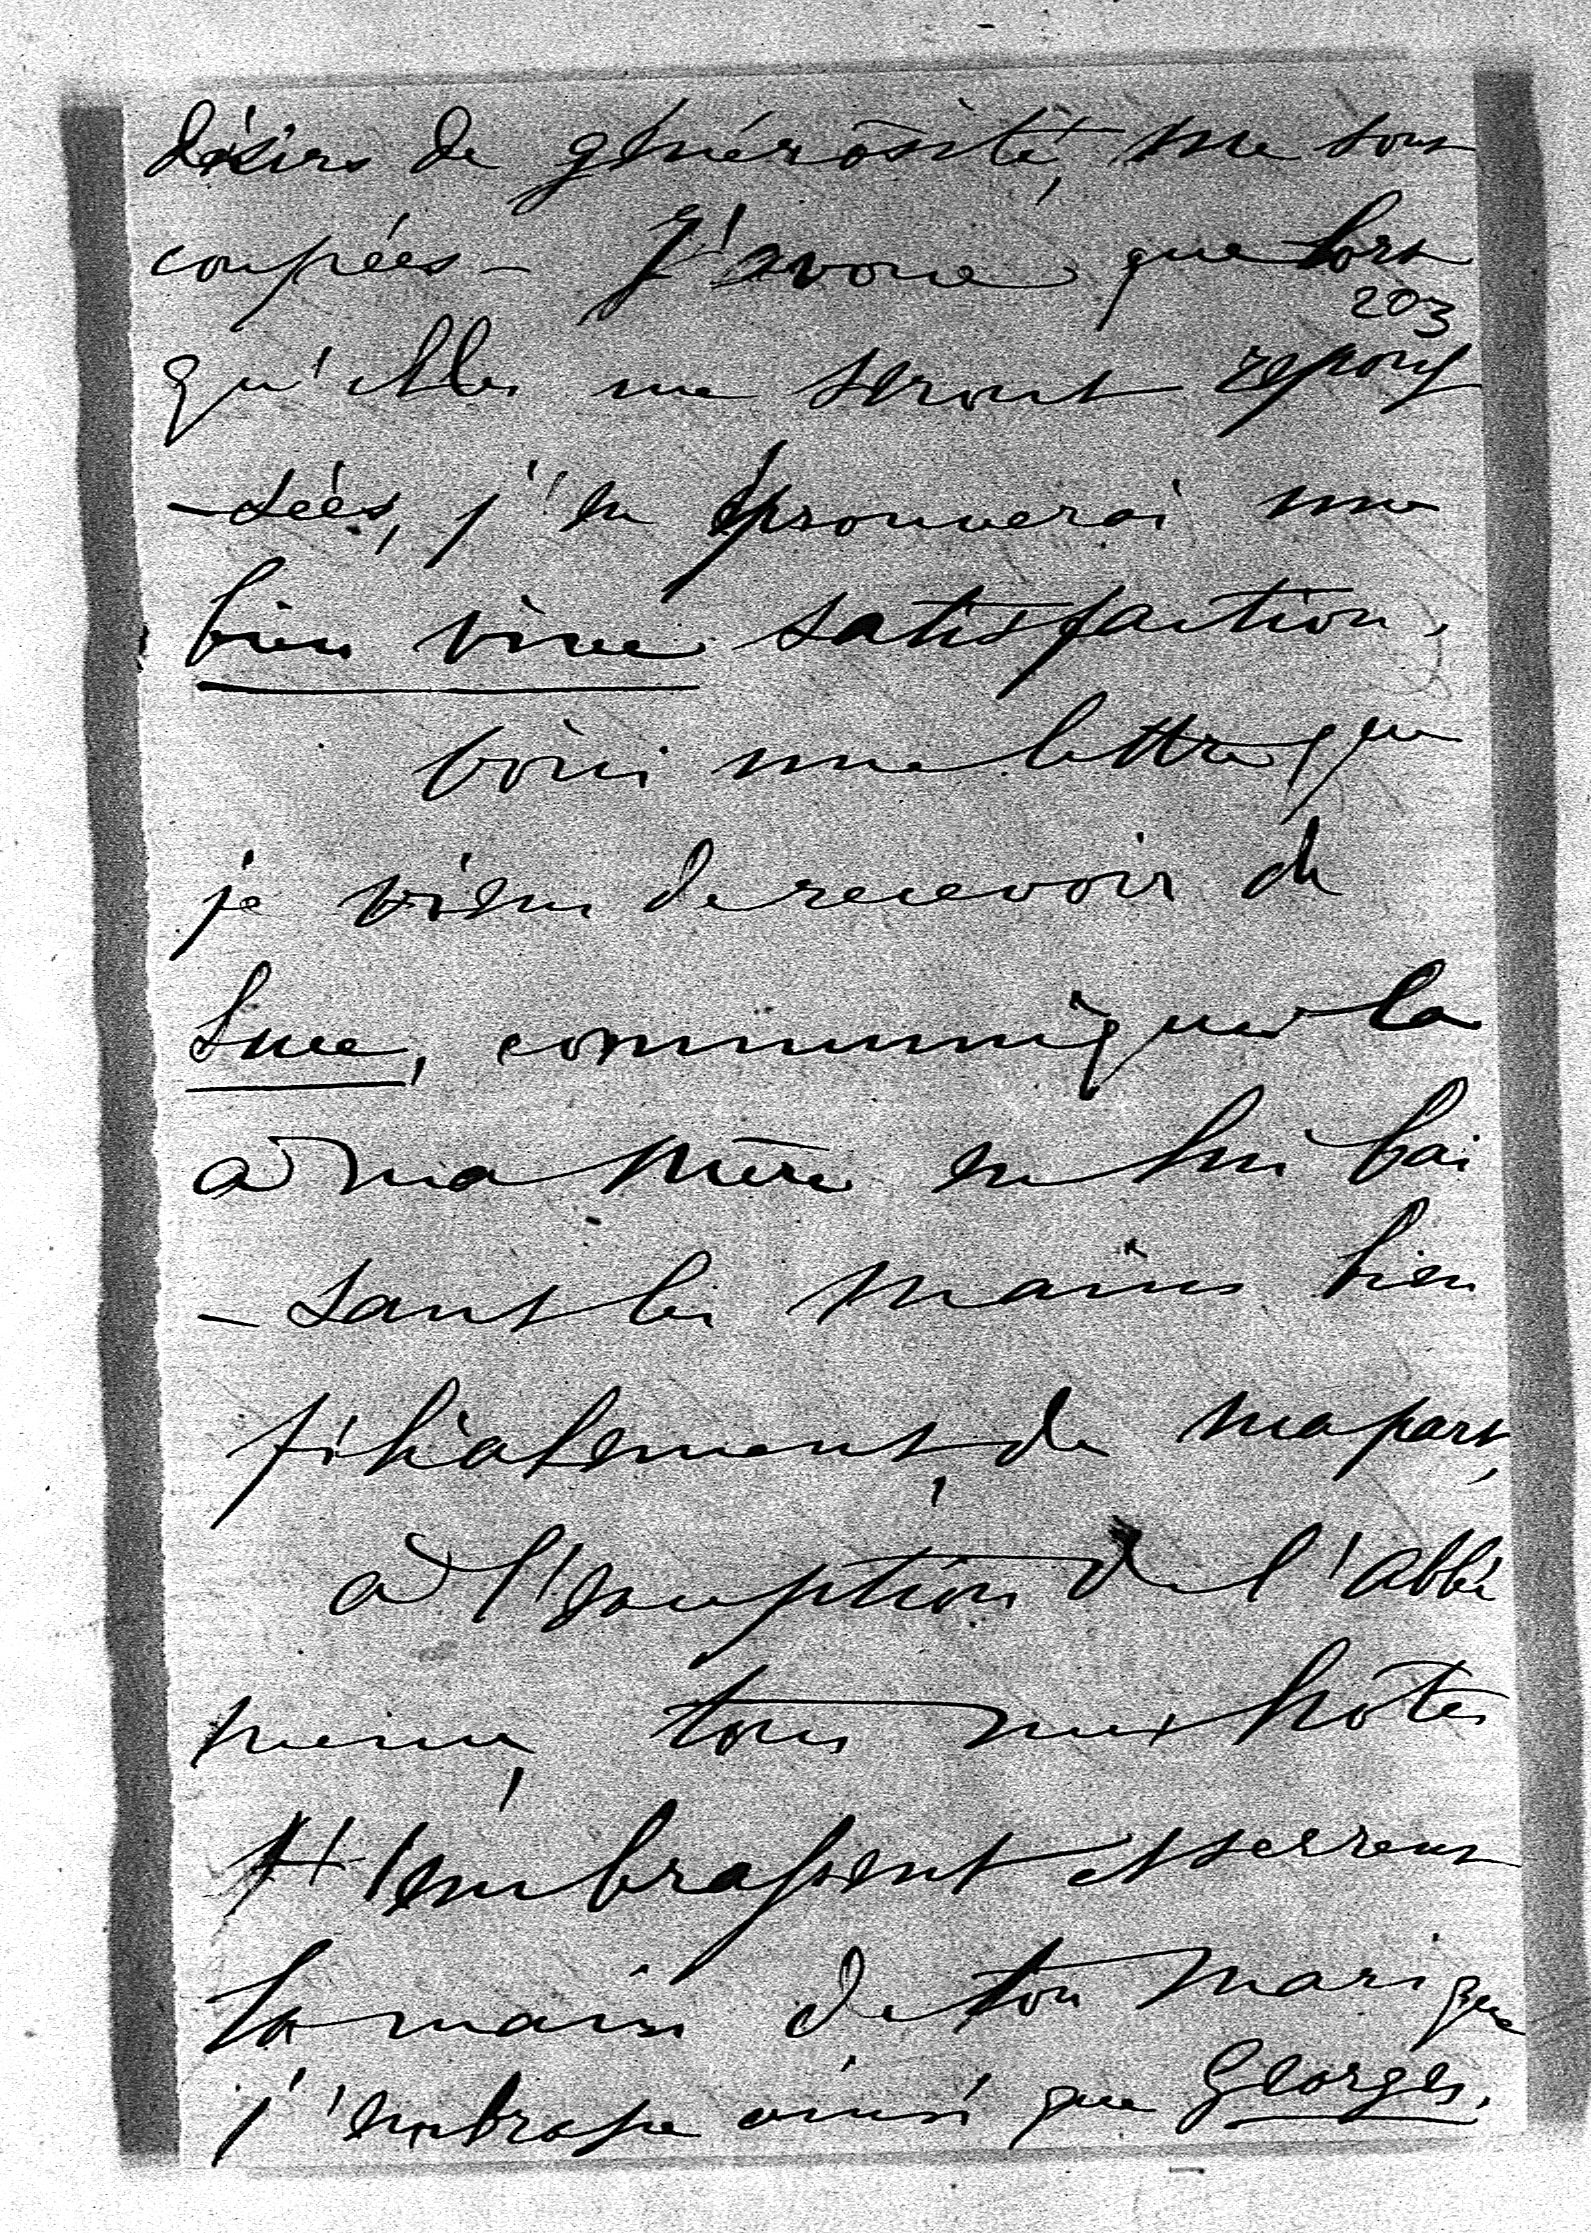 désirs de générosité, me sont
coupées - J'avoue que lors
203
qu'elles me seront repous
-sées, j'en éprouverai une
bien vive satisfaction.
Voici une lettre que
je viens de recevoir de
Luce, communique la
à ma mère en lui bai
-sant les mains bien
filialement de ma part,
à l'exception de l'abbé
même, tous mes hôtes
t'embrassent et serrent
la main de ton mari que
j'embrasse ainsi que Georges.